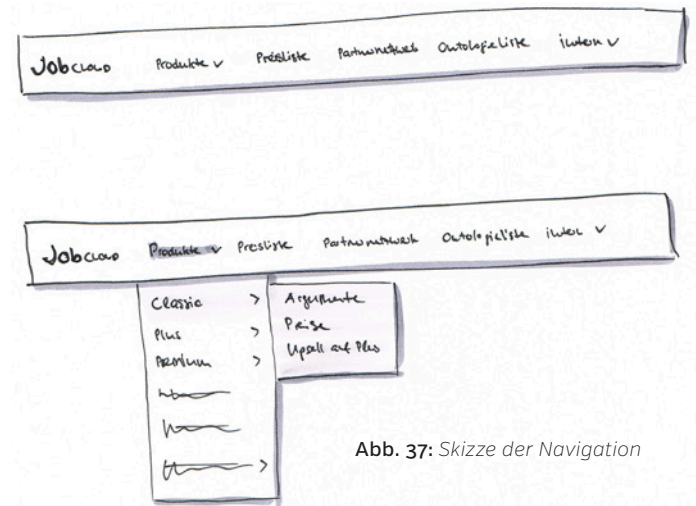 JobCLOUD Produkte Preisliste Partnernetzwerk Ontologieliste intern
JobCLOUD Produkte Preisliste Partnernetzwerk Ontologieliste intern
Classic > Argumente
Plus > Preise
Premium > Upsell auf Plus
>
Abb. 37: Skizze der Navigation